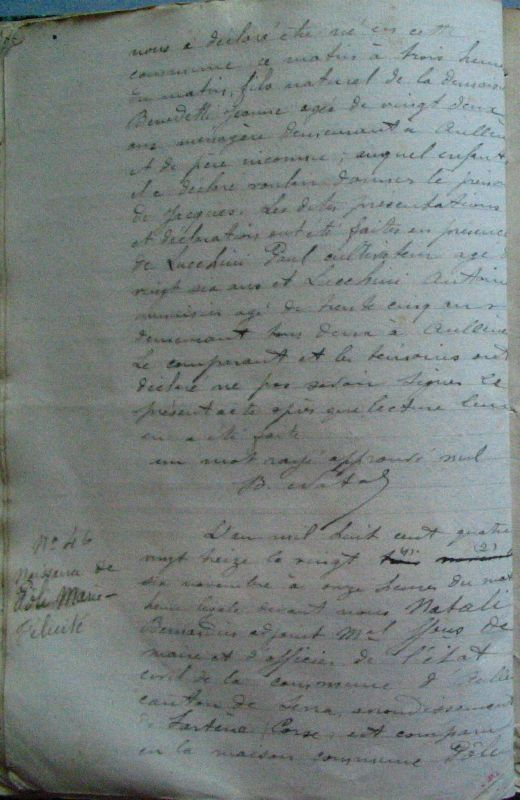 nous a déclaré être né en cette
commune ce matin à trois heures
du matin, fils naturel de la demoiselle
Benedetti Jeanne agée de vingt deux
ans ménagère demeurant à Aullène
et de père inconnu; auquel enfant
il a déclaré vouloir donner le prénom
de Jacques. Les dites présentations
et déclarations ont été faites en présence
de Lucchini Paul cultivateur agé
vingt six ans et Lucchini Antoine
menuisier agé de trente cinq ans
demeurant tous deux à Aullène
Le comparant et les témoins ont
déclaré ne pas savoir signer le
présent acte après que lecture leur
en a été faite
un mot rayé approuvé nul
B. Natali
N° 46
Naissance de
Pôli Marie-
Félicité
L'an mil huit cent quatre
vingt treize le vingt
six novembre à onze heures du mat
heure légale devant nous Natali
Bernardin adjoint
maire et d'officier de l'état
civil de la commune d'Aullène
canton de Serra, arrondissement
de Sartène, Corse, est comparu
en la maison commune Pôli